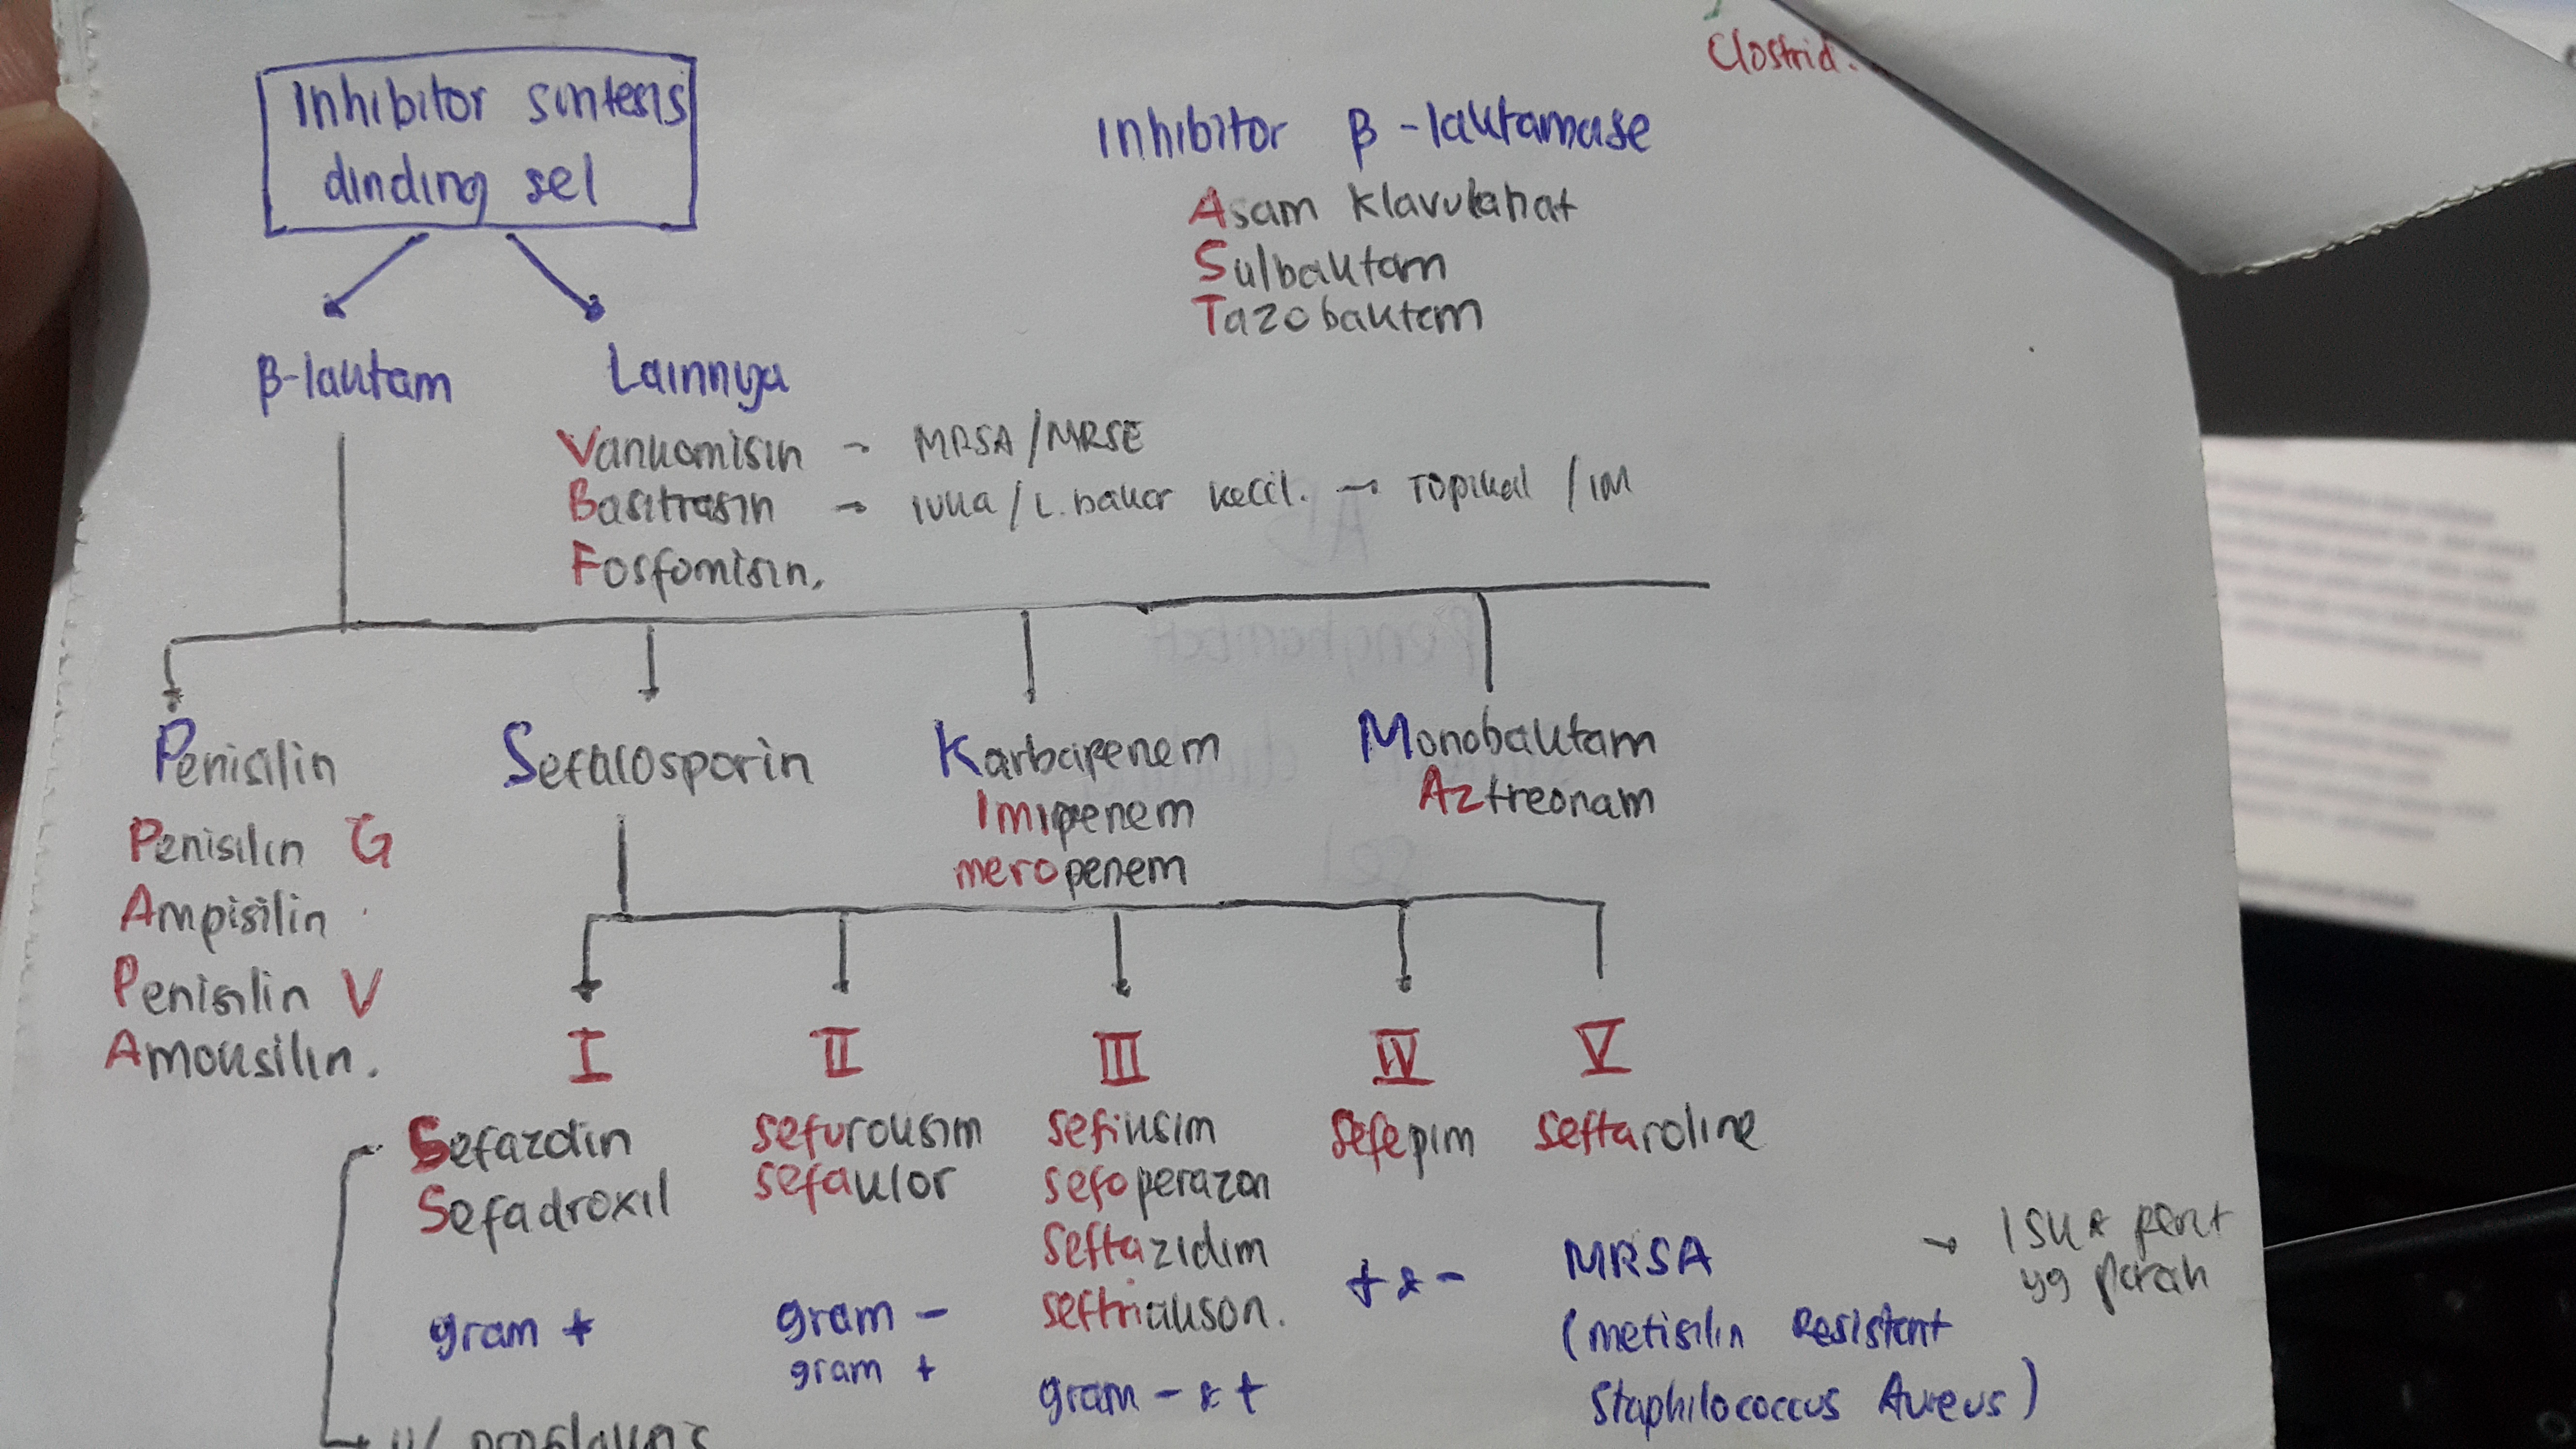 Clostrid.
Inhibitor sintesis
dinding sel
Inhibitor β-laktamase
Asam Klavulanat
Sulbaktam
Tazobaktam
β-laktam
Lainnya
Vankomisin → MRSA/MRSE
Basitrasin → luka/L.bakar kecil. → Topikal / IM
Fosfomisin.
Penisilin
Sefalosporin
Karbapenem
Monobaktam
Imipenem
Aztreonam
meropenem
Penisilin G
Ampisilin
Penisilin V
Amoksilin.
I
II
III
IV
V
Sefazolin
Sefadroxil
sefuroksim
sefaklor
sefiksim
sefoperazon
seftazidim
seftriakson.
sefepim
seftaroline
gram +
gram -
gram +
gram - & +
+ & -
MRSA
(metisilin Resistant
Staphilococcus Aureus)
→ ISK &
yg parah
u/ profilaksis